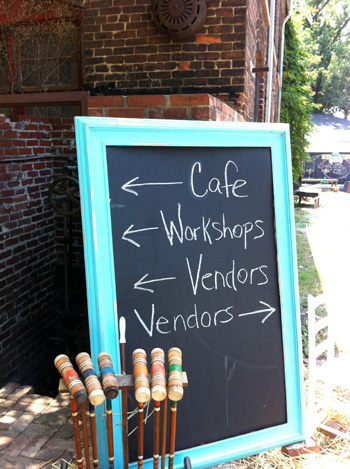 ← Cafe
← Workshops
← Vendors
Vendors →